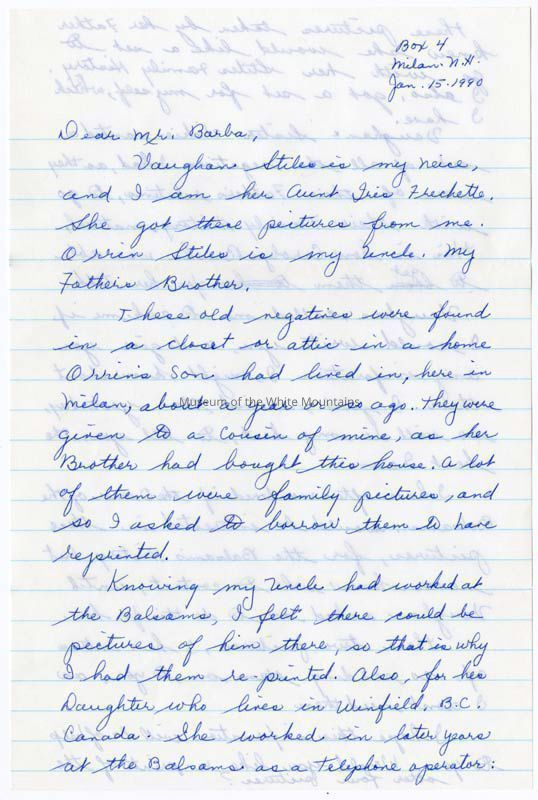 Box 4
Milan. N.H.
Jan. 15-1990
Dear Mr. Barba,
Vaughan Stiles is my neice,
and I am her Aunt Iris Frechette.
She got these peitures from me.
Orrin Stiles is my Uncle. My
Fathers Brother.
These old negatines were found
in a closet or attic in a home
Orrins Son had lived in, here in
Milan, about a year or so ago. They were
Museum of the White Mountains
given to a Cousin of mine, as her
Brother had bought this house. A lot
of them were family pictures, and
so I asked to borrow them to have
reprinted.
Knowing my Uncle had worked at
the Balsams, I felt there could be
pectures of him there, so that is why
I had them re-printed. Also, for his
Daughter who lives in Winfield, B.C.
Canada. She worked in later years
at the Balsams as a Telephone operator: